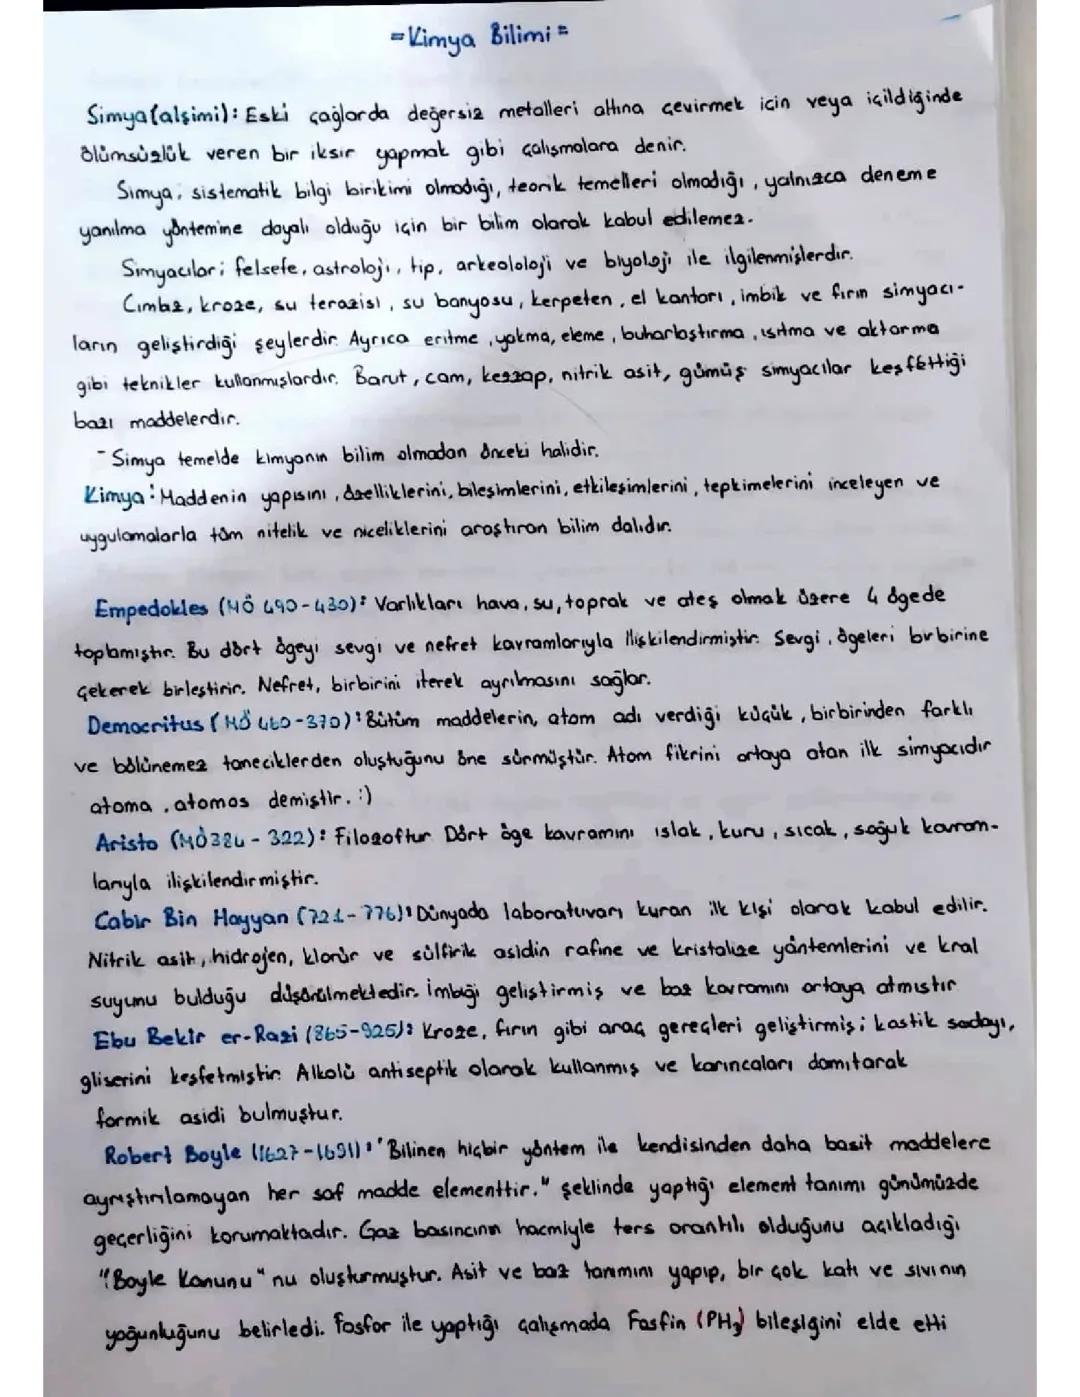 =Kimya Bilimi=
Simya(alşimi): Eski çağlarda değersiz metalleri altına çevirmek için veya içildiğinde
ölümsüzlük veren bir iksir yapmak gibi çalışmalara denir.
Simya; sistematik bilgi birikimi olmadığı, teorik temelleri olmadığı, yalnızca deneme
yanılma yöntemine dayalı olduğu için bir bilim olarak kabul edilemez.
Simyacılar; felsefe, astroloji, tıp, arkeololoji ve biyoloji ile ilgilenmişlerdir.
Cımbız, kroze, su terazisi, su banyosu, kerpeten, el kantarı, imbik ve fırın simyacı-
ların geliştirdiği şeylerdir. Ayrıca eritme, yakma, eleme, buharlaştırma, ısıtma ve aktarma
gibi teknikler kullanmışlardır. Barut, cam, kezzap, nitrik asit, gümüş simyacılar keşfettiği
bazı maddelerdir.
- Simya temelde kimyanın bilim olmadan önceki halidir.
Kimya: Maddenin yapısını, özelliklerini, bileşimlerini, etkileşimlerini, tepkimelerini inceleyen ve
uygulamalarla tüm nitelik ve niceliklerini araştıran bilim dalıdır.
Empedokles (MÖ 490-430): Varlıkları hava, su, toprak ve ateş olmak üzere 4 ögede
toplamıştır. Bu dört ögeyi sevgi ve nefret kavramlarıyla ilişkilendirmiştir. Sevgi, ögeleri birbirine
çekerek birleştirir. Nefret, birbirini iterek ayrılmasını sağlar.
Democritus (MÖ 460-370): Bütüm maddelerin, atom adı verdiği küçük, birbirinden farklı
ve bölünemez taneciklerden oluştuğunu öne sürmüştür. Atom fikrini ortaya atan ilk simyacıdır
atoma, atomos demiştir. :)
Aristo (MÖ384-322): Filozoftur Dört öge kavramını ıslak, kuru, sıcak, soğuk kavram-
larıyla ilişkilendirmiştir.
Cabir Bin Hayyan (721-776): Dünyada laboratuvarı kuran ilk kişi olarak kabul edilir.
Nitrik asit, hidrojen, klorür ve sülfirik asidin rafine ve kristalize yöntemlerini ve kral
suyunu bulduğu düşünülmektedir. İmbiği geliştirmiş ve baz kavramını ortaya atmıştır
Ebu Bekir er-Razi (865-925): Kroze, fırın gibi araç gereçleri geliştirmiş; kastik sodayı,
gliserini keşfetmiştir. Alkolü antiseptik olarak kullanmış ve karıncaları damıtarak
formik asidi bulmuştur.
Robert Boyle (1627-1691): "Bilinen hiçbir yöntem ile kendisinden daha basit maddelere
ayrıştırılamayan her saf madde elementtir." şeklinde yaptığı element tanımı günümüzde
geçerliğini korumaktadır. Gaz basıncının hacmiyle ters orantılı olduğunu açıkladığı
"Boyle Kanunu" nu oluşturmuştur. Asit ve baz tanımını yapıp, bir çok katı ve sıvının
yoğunluğunu belirledi. Fosfor ile yaptığı çalışmada Fosfin (PH3) bileşiğini elde etti